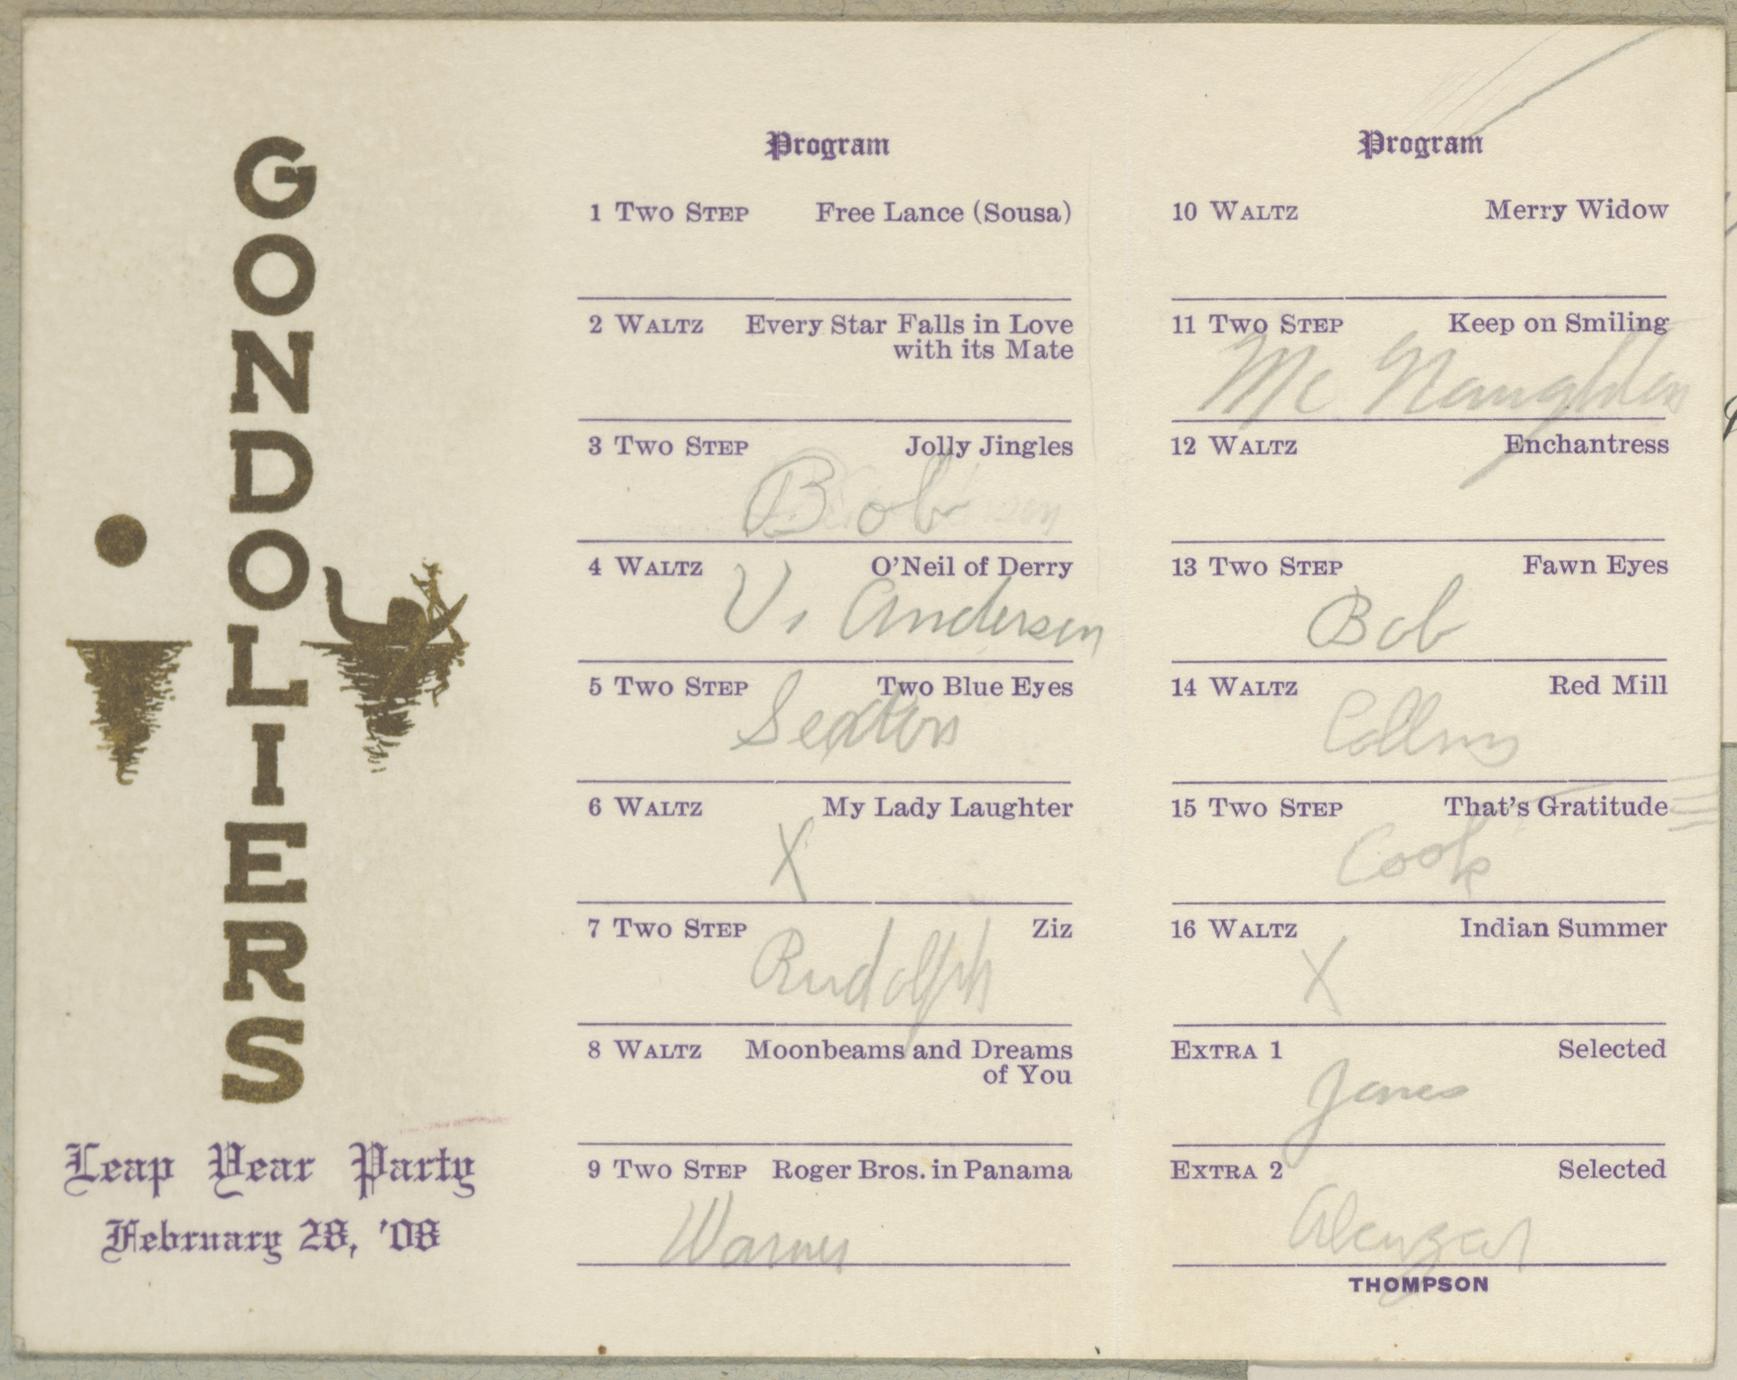 GONDOLIERS
Leap Year Party
February 28, '08
Program
1 Two Step Free Lance (Sousa)
2 Waltz Every Star Falls in Love
with its Mate
3 Two Step Jolly Jingles
Bob
4 Waltz O'Neil of Derry
Vi Andersen
5 Two Step Two Blue Eyes
Sexton
6 Waltz My Lady Laughter
X
7 Two Step Ziz
Rudolph
8 Waltz Moonbeams and Dreams
of You
9 Two Step Roger Bros. in Panama
Warner
Program
10 Waltz Merry Widow
11 Two Step Keep on Smiling
Mc Naughton
12 Waltz Enchantress
13 Two Step Fawn Eyes
Bob
14 Waltz Red Mill
Collins
15 Two Step That's Gratitude
Cook
16 Waltz Indian Summer
X
Extra 1 Selected
Jones
Extra 2 Selected
THOMPSON